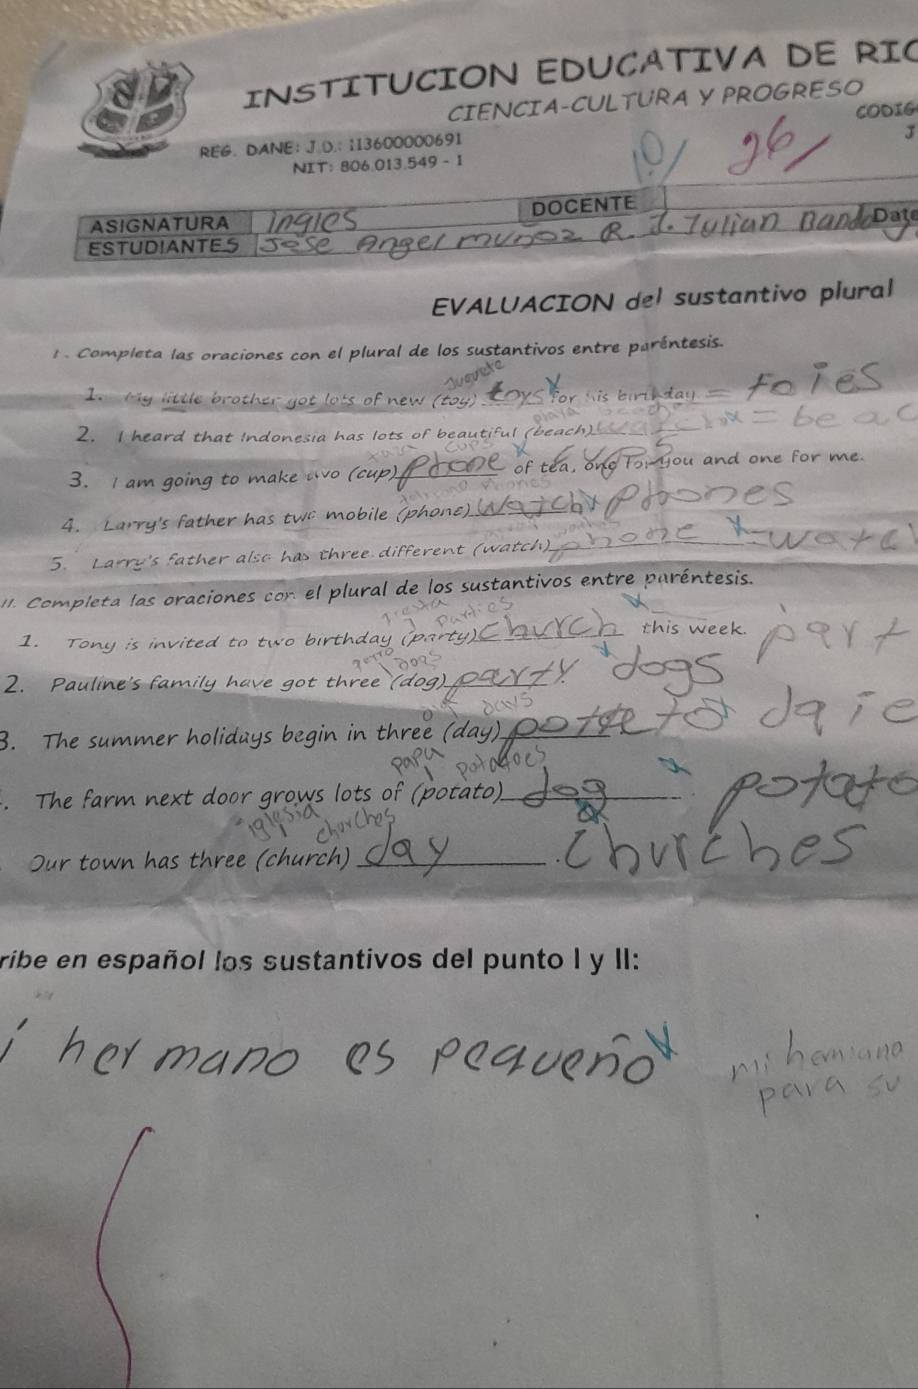 INSTITUCION EDUCATIVA DE RIO
CIENCIA-CULTURA Y PROGRESO
CODIG
REG. DANE: J.D.: 113600000691
J
NIT: 806.013.549 - 1
10/ 26/
ASIGNATURA Ingles DOCENTE
ESTUDIANTES Jose Angel munoz R. J. Julian Band Date
EVALUACION del sustantivo plural
I. Completa las oraciones con el plural de los sustantivos entre paréntesis.
Juguete
1. My little brother got lots of new (toy) toys for his birthday = foies
playa
2. I heard that Indonesia has lots of beautiful (beach) = beac
taza cups
3. I am going to make two (cup) phone of tea, one for you and one for me.
phones
4. Larry's father has two mobile (phone) watch phones
5. Larry's father also has three different (watch) phone = watc
II. Completa las oraciones con el plural de los sustantivos entre paréntesis.
fiesta parties
1. Tony is invited to two birthday (party) church this week. part
perro dogs
2. Pauline's family have got three (dog) party. dogs
days
3. The summer holidays begin in three (day) daie
papa potatoes
. The farm next door grows lots of (potato) dog potato
iglesia churches
Our town has three (church) day . churches
ribe en español los sustantivos del punto I y II:
i hermano es pequeño
mi hermano
para su